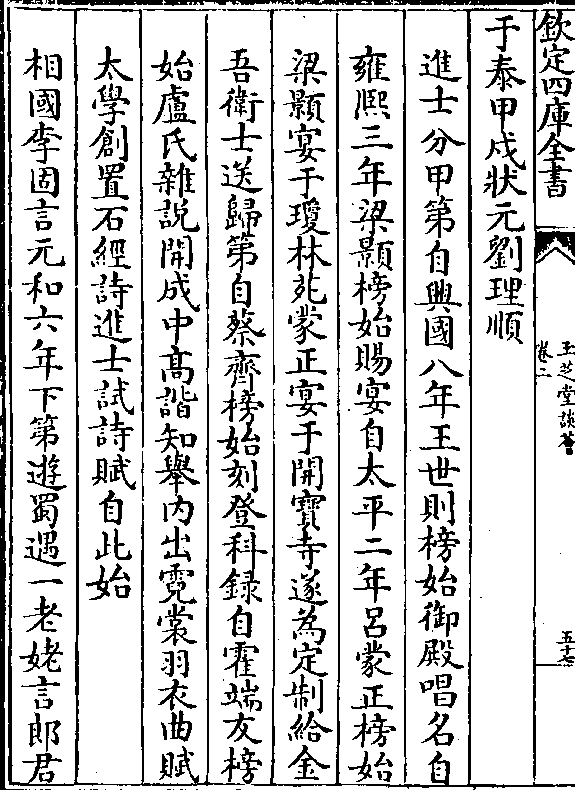 欽定四庫全書
玉芝堂談薈
卷二
五十七
于泰甲戌狀元劉理順
進士分甲第自興國八年王世則榜始御殿唱名自
雍熙三年梁顥榜始賜宴自太平二年呂蒙正榜始
梁顥宴于瓊林苑蒙正宴于開寶寺遂為定制給金
吾衛士送歸第自蔡齊榜始刻登科録自霍端友榜
始盧氏雜説開成中髙諧知舉内出霓裳羽衣曲賦
太學創置石經詩進士試詩賦自此始
相國李固言元和六年下第遊蜀遇一老姥言郎君